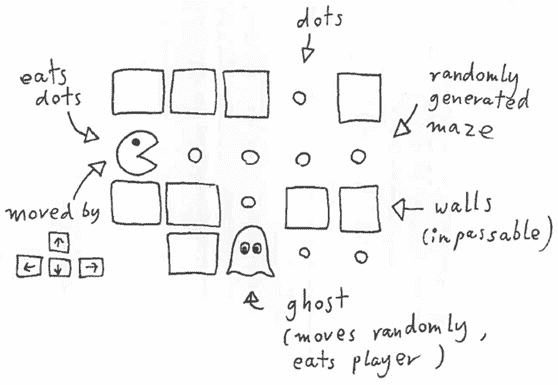 dots
eats
dots
randomly
generated
maze
moved by
walls
(inpassable)
ghost
(moves randomly,
eats player)